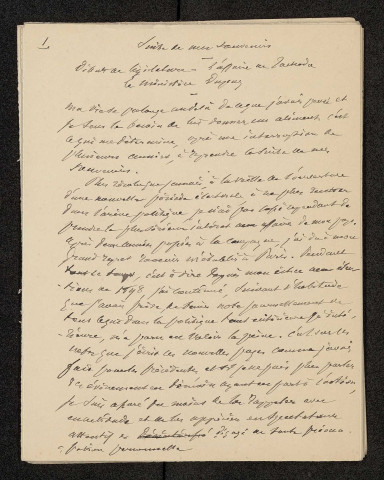 1
Suite de mes souvenirs
Début de législature — L'affaire de Fachoda
Le ministère Dupuy
Ma vie se prolonge au delà de ce que j'avais prévu et
je sens le besoin de lui donner un aliment. C'est
ce qui me détermine, après une interruption de
plusieurs années à reprendre la suite de mes
souvenirs.
Plus résolu que jamais, à la veille de l'ouverture
d'une nouvelle période électorale à ne plus rentrer
dans l'arène politique je n'ai pas cessé cependant de
prendre le plus sérieux intérêt aux affaires de mon pays.
Après deux années passées à la campagne, j'ai dû à mon
grand regret revenir m'établir à Paris. Pendant
tout ce temps, c'est à dire depuis mon échec aux élec-
tions de 1898 j'ai continué, suivant l'habitude
que j'avais prise, de tenir note journellement de
tout ce qui dans la politique tant extérieure qu'inté-
rieure, m'a paru en valoir la peine. C'est sur ces
notes que j'écris ces nouvelles pages comme j'avais
fait pour les précédentes et si je ne puis plus parler
des événements en témoin ayant pris part à l'action
je suis assuré du moins de les rappeler avec
exactitude et de les apprécier en spectateur
attentif et dégagé de toute préoccu-
pation personnelle